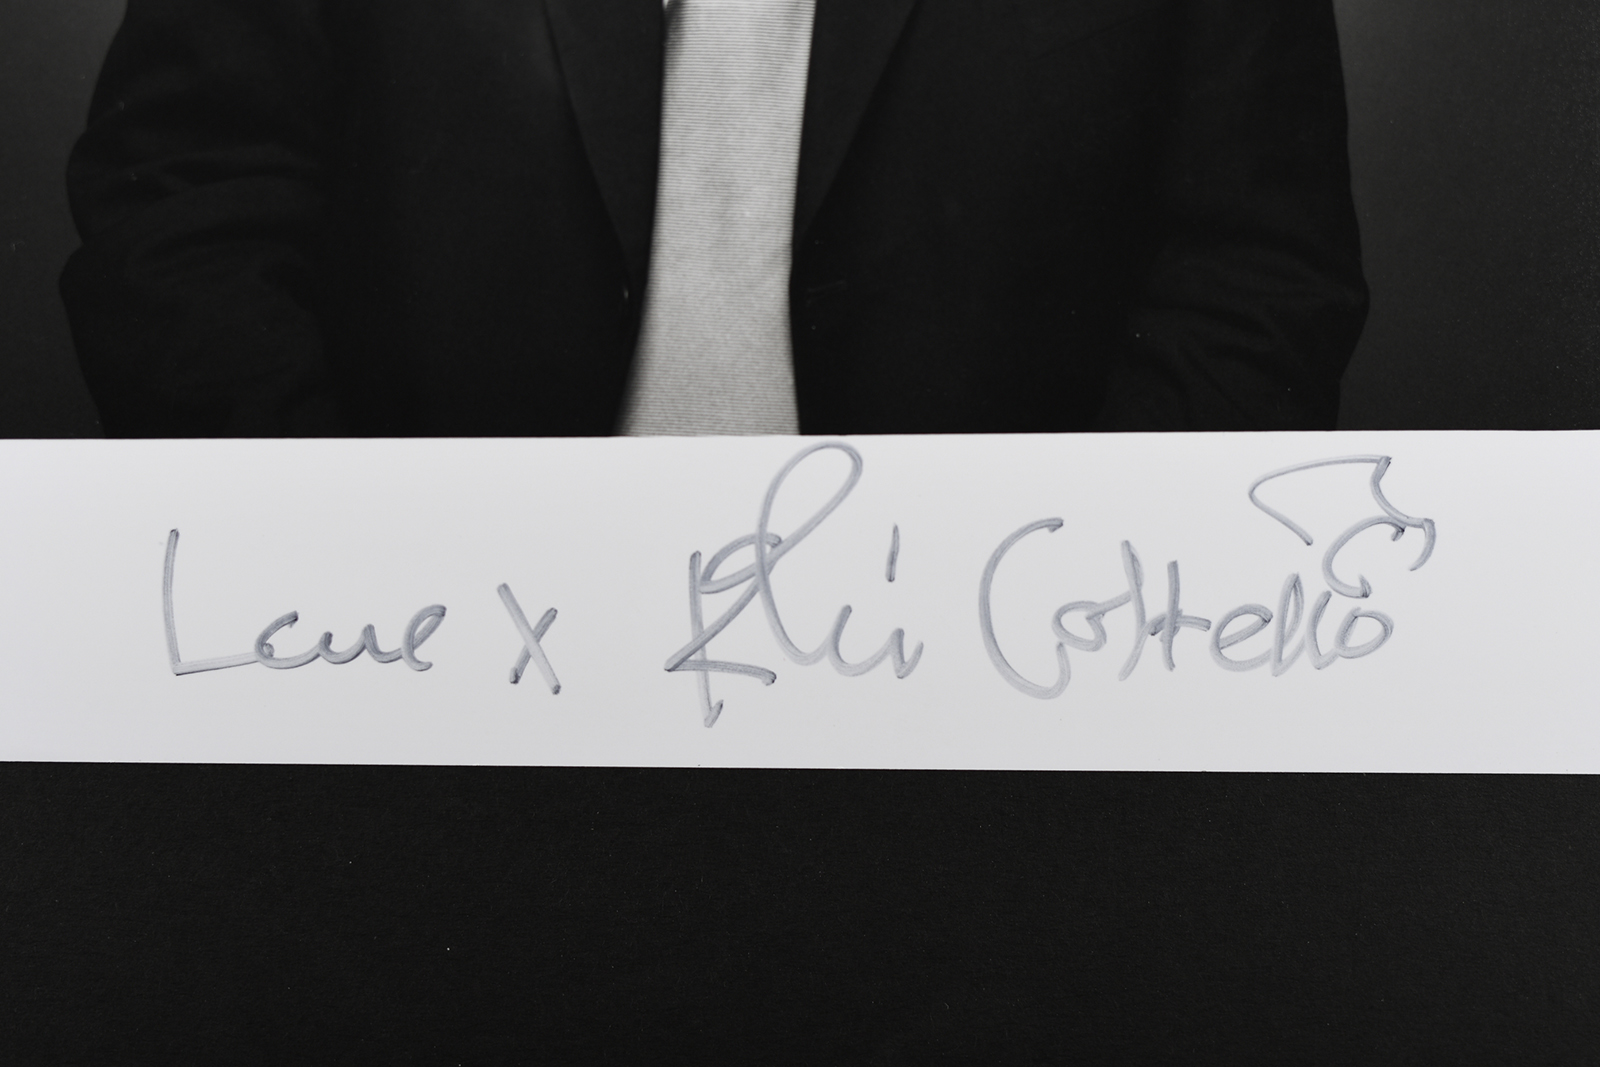 Love x Elvis Costello